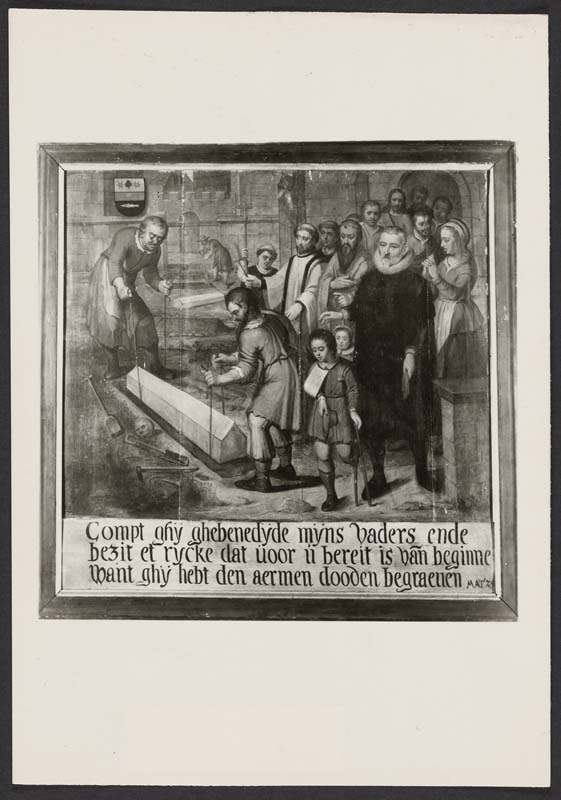 Compt ghÿ ghebenedÿde mÿns vaders ende
bezit et rÿcke dat uoor ü bereit is van beginne
Want ghÿ hebt den aermen dooden begraeuen MAT 25